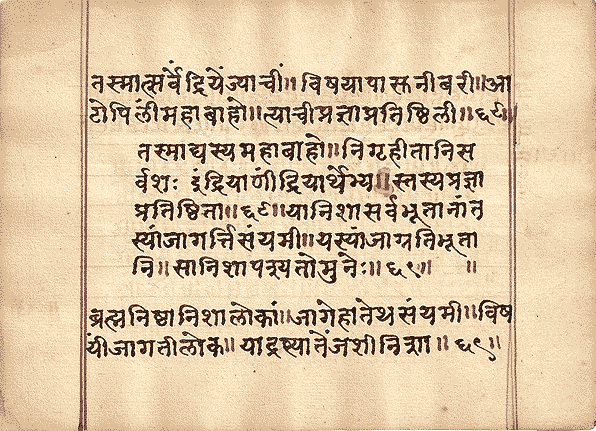 तस्मात्सर्वेंद्रियेंज्याचीं॥विषयापासूनीवरी॥आ
टोपिलींमहाबाहो॥त्याचीप्रज्ञाप्रतिष्ठिली॥६८॥
तस्माद्यस्यमहाबाहो॥निगृहीतानिस
र्वशः इंद्रियाणींद्रियार्थेभ्य॥स्तस्यप्रज्ञा
प्रतिष्ठिता॥६८॥यानिशासर्वभूतानांत
स्यांजागर्त्तिसंयमी॥यस्यांजाग्रतिभूता
नि॥सानिशापश्यतोमुनेः॥६९॥ ॥
ब्रह्मनिष्ठानिशालोकां॥जागेहातेथसंयमी॥विष
यींजागतीलोक॥याद्रष्ट्यातेंजशीनिशा॥६९॥